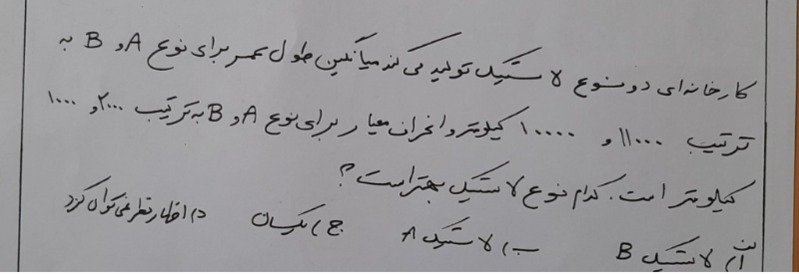 کارخانه‌ای دو نوع لاستیک تولید می کند میانگین طول عمر برای نوع A و B به
ترتیب ۱۱۰۰۰ و ۱۰۰۰۰ کیلومتر و انحراف معیار برای نوع A و B به ترتیب ۲۰۰۰ و ۱۰۰۰
کیلومتر است. کدام نوع لاستیک بهتر است؟
الف) لاستیک B ب) لاستیک A ج) یکسان د) اظهار نظر نمی توان کرد